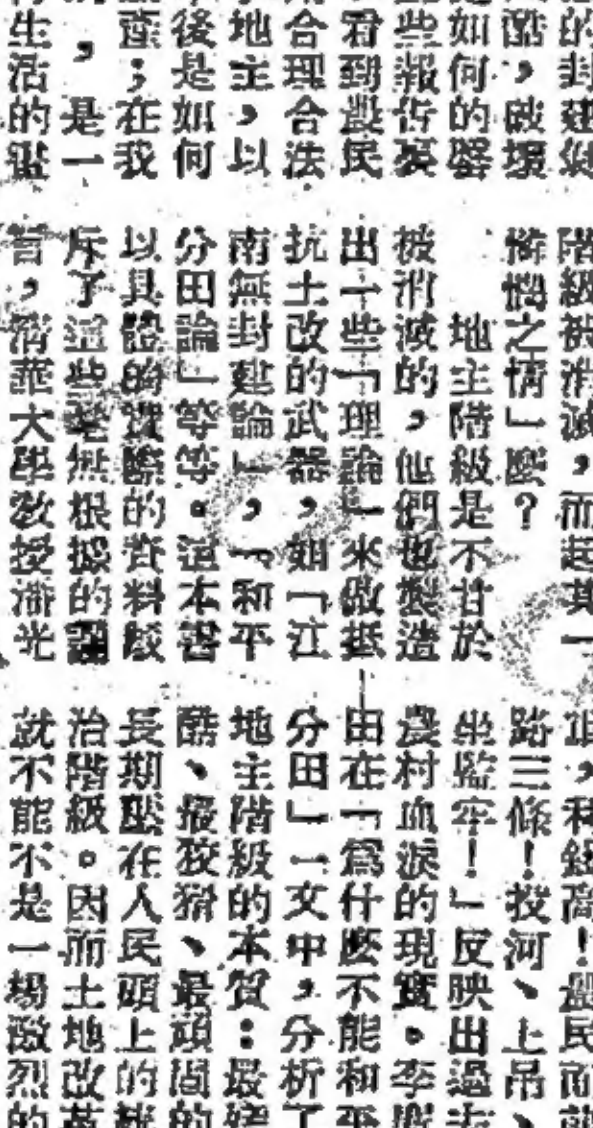 的封建
酷，破壞
如何的
些報告
看到農民
合理合法
地主，以
後是如何
產；在我
，是一
生活的
階級被消滅，而起其一
惱之情」呢？
地主階級是不甘於
被消滅的，他們也製造
出一些「理論」來做抵
抗土改的武器，如「江
南無封建論」，「和平
分田論」等等。這本書
以具體的實際的資料駁
斥了這些毫無根據的謬
言，清華大學教授潘光
，利錢高！農民面前
路三條！投河、上吊、
坐監牢！」反映出過去
農村血淚的現實。李
由在「爲什麽不能和平
分田」一文中，分析了
地主階級的本質：最殘
酷、最狡猾、最頑固的
長期壓在人民頭上的統
治階級。因而土地改革
就不能不是一場激烈的